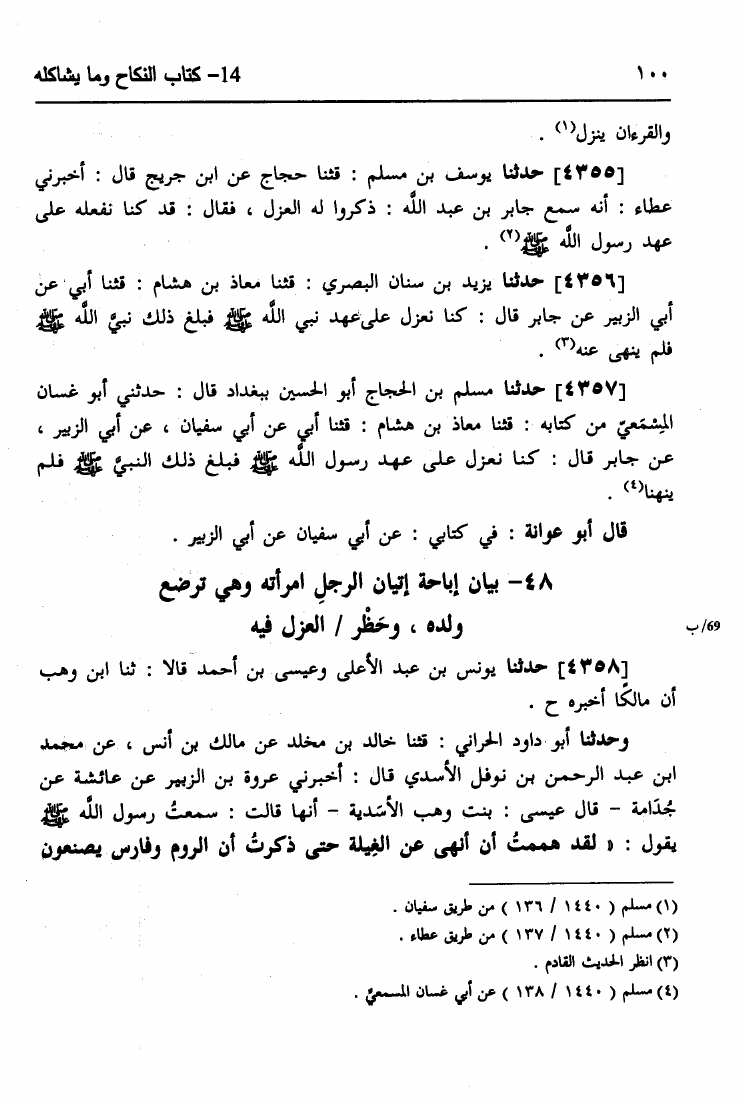 ١٠٠ 14- كتاب النكاح وما يشاكله
والقرءان ينزل(١) .
[٤٣٥٥] حدثنا يوسف بن مسلم : قثنا حجاج عن ابن جريج قال : أخبرني
عطاء : أنه سمع جابر بن عبد اللَّه : ذكروا له العزل ، فقال : قد كنا نفعله على
عهد رسول اللَّه ﷺ(٢) .
[٤٣٥٦] حدثنا يزيد بن سنان البصري : قثنا معاذ بن هشام : قثنا أبي عن
أبي الزبير عن جابر قال : كنا نعزل على عهد نبي اللَّه ﷺ فبلغ ذلك نبيَّ اللَّه ﷺ
فلم ينهى عنه(٣) .
[٤٣٥٧] حدثنا مسلم بن الحجاج أبو الحسين ببغداد قال : حدثني أبو غسان
المِسْمَعيّ من كتابه : قثنا معاذ بن هشام : قثنا أبي عن أبي سفيان ، عن أبي الزبير ،
عن جابر قال : كنا نعزل على عهد رسول اللَّه ﷺ فبلغ ذلك النبيَّ ﷺ فلم
ينهنا(٤) .
قال أبو عوانة : في كتابي : عن أبي سفيان عن أبي الزبير .
٤٨- بيان إباحة إتيان الرجلِ امرأته وهي ترضع
ولده ، وحَظْر / العزل فيه
69/ب
[٤٣٥٨] حدثنا يونس بن عبد الأعلى وعيسى بن أحمد قالا : ثنا ابن وهب
أن مالكًا أخبره ح .
وحدثنا أبو داود الحراني : قثنا خالد بن مخلد عن مالك بن أنس ، عن محمد
ابن عبد الرحمن بن نوفل الأسدي قال : أخبرني عروة بن الزبير عن عائشة عن
جُدَامة – قال عيسى : بنت وهب الأسَدية – أنها قالت : سمعتُ رسول اللَّه ﷺ
يقول : « لقد هممتُ أن أنهى عن الغِيلة حتى ذكرتُ أن الروم وفارس يصنعون
(١) مسلم ( ١٤٤٠ / ١٣٦ ) من طريق سفيان .
(٢) مسلم ( ١٤٤٠ / ١٣٧ ) من طريق عطاء .
(٣) انظر الحديث القادم .
(٤) مسلم ( ١٤٤٠ / ١٣٨ ) عن أبي غسان المسمعيِّ .